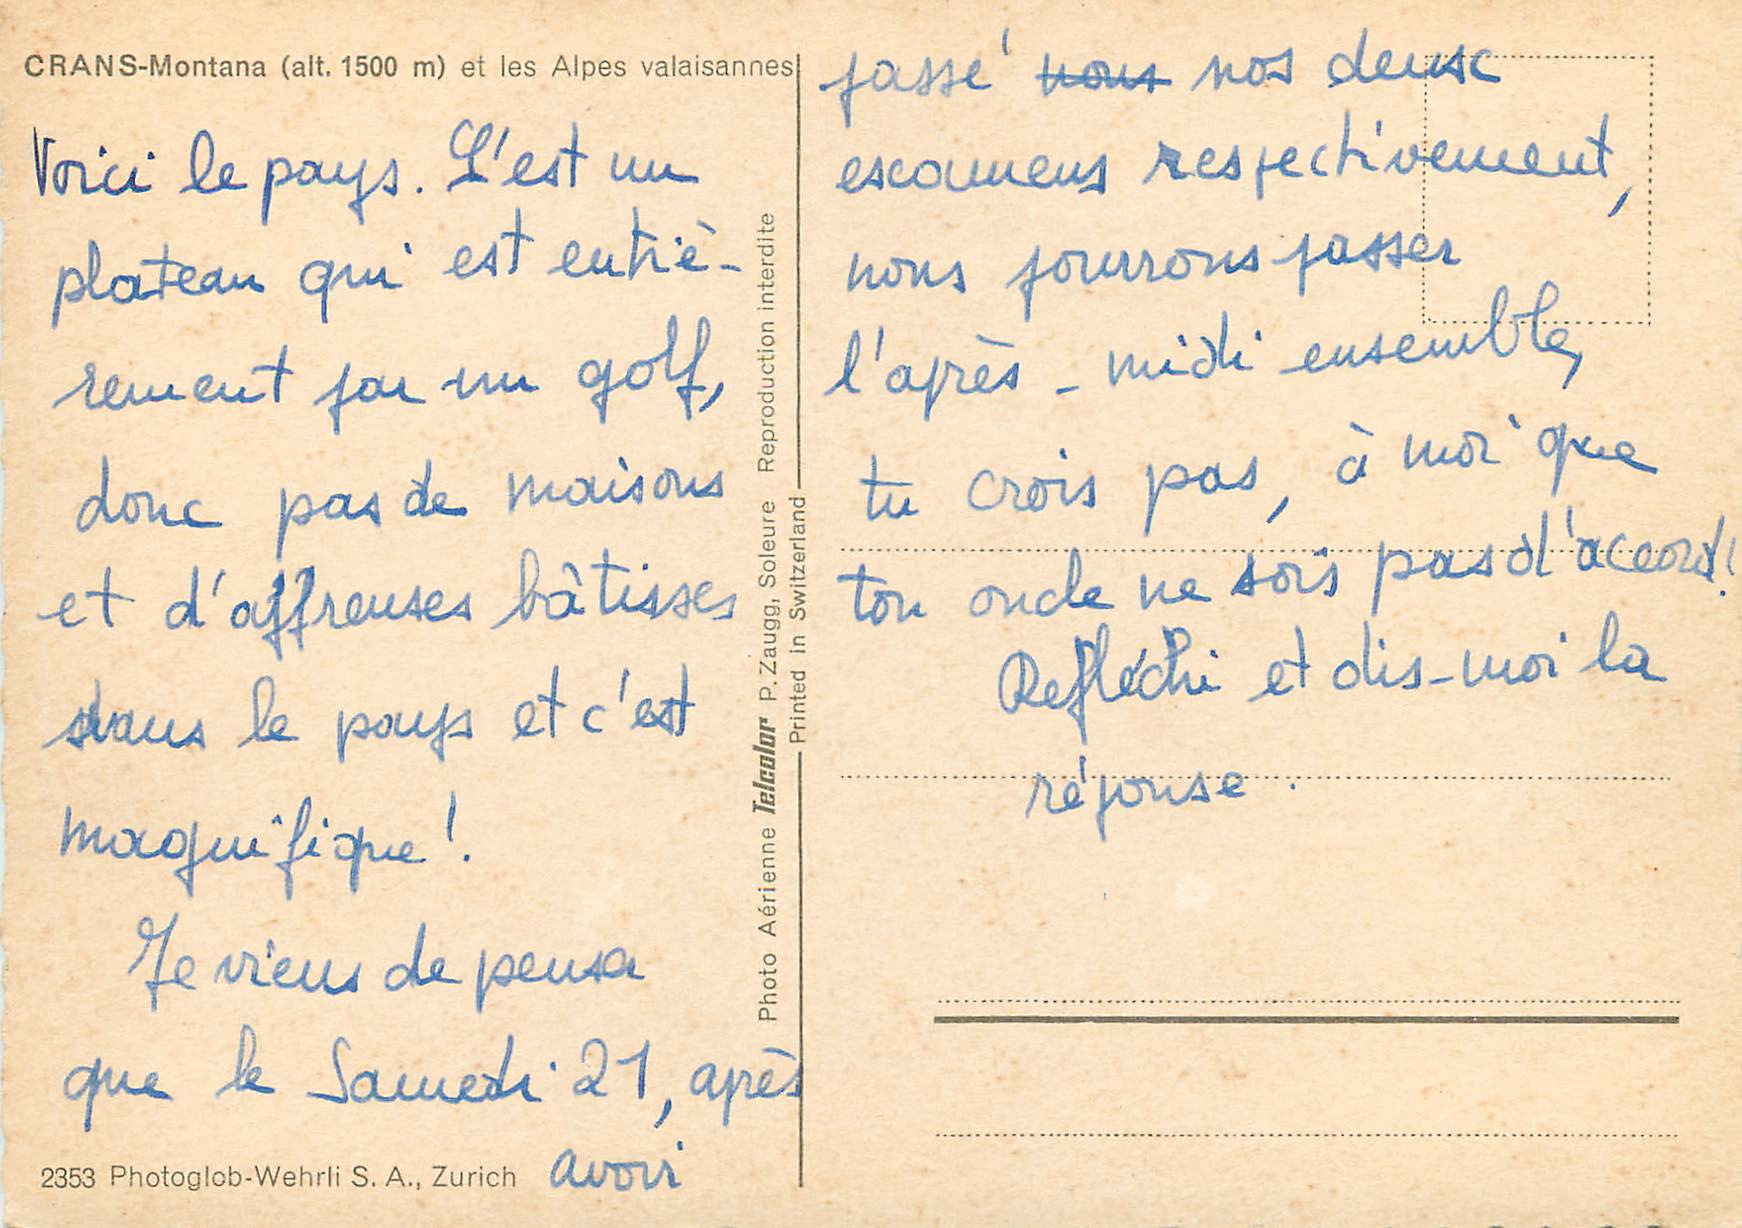 CRANS-Montana (alt. 1500 m) et les Alpes valaisannes
Voici le pays. C'est un
plateau qui est entiè-
rement par un golf,
donc pas de maisons
et d'affreuses bâtisses
dans le pays et c'est
magnifique !
Je viens de penser
que le Samedi 21, après
avoir
2353 Photoglob-Wehrli S. A., Zurich
Photo Aérienne Telcolor P. Zaugg, Soleure Reproduction interdite
Printed in Switzerland
passé nous nos deux
examens respectivement,
nous pourrons passer
l'après-midi ensemble,
tu crois pas, à moi que
ton oncle ne sois pas d'accord !
Refléchi et dis-moi la
réponse.